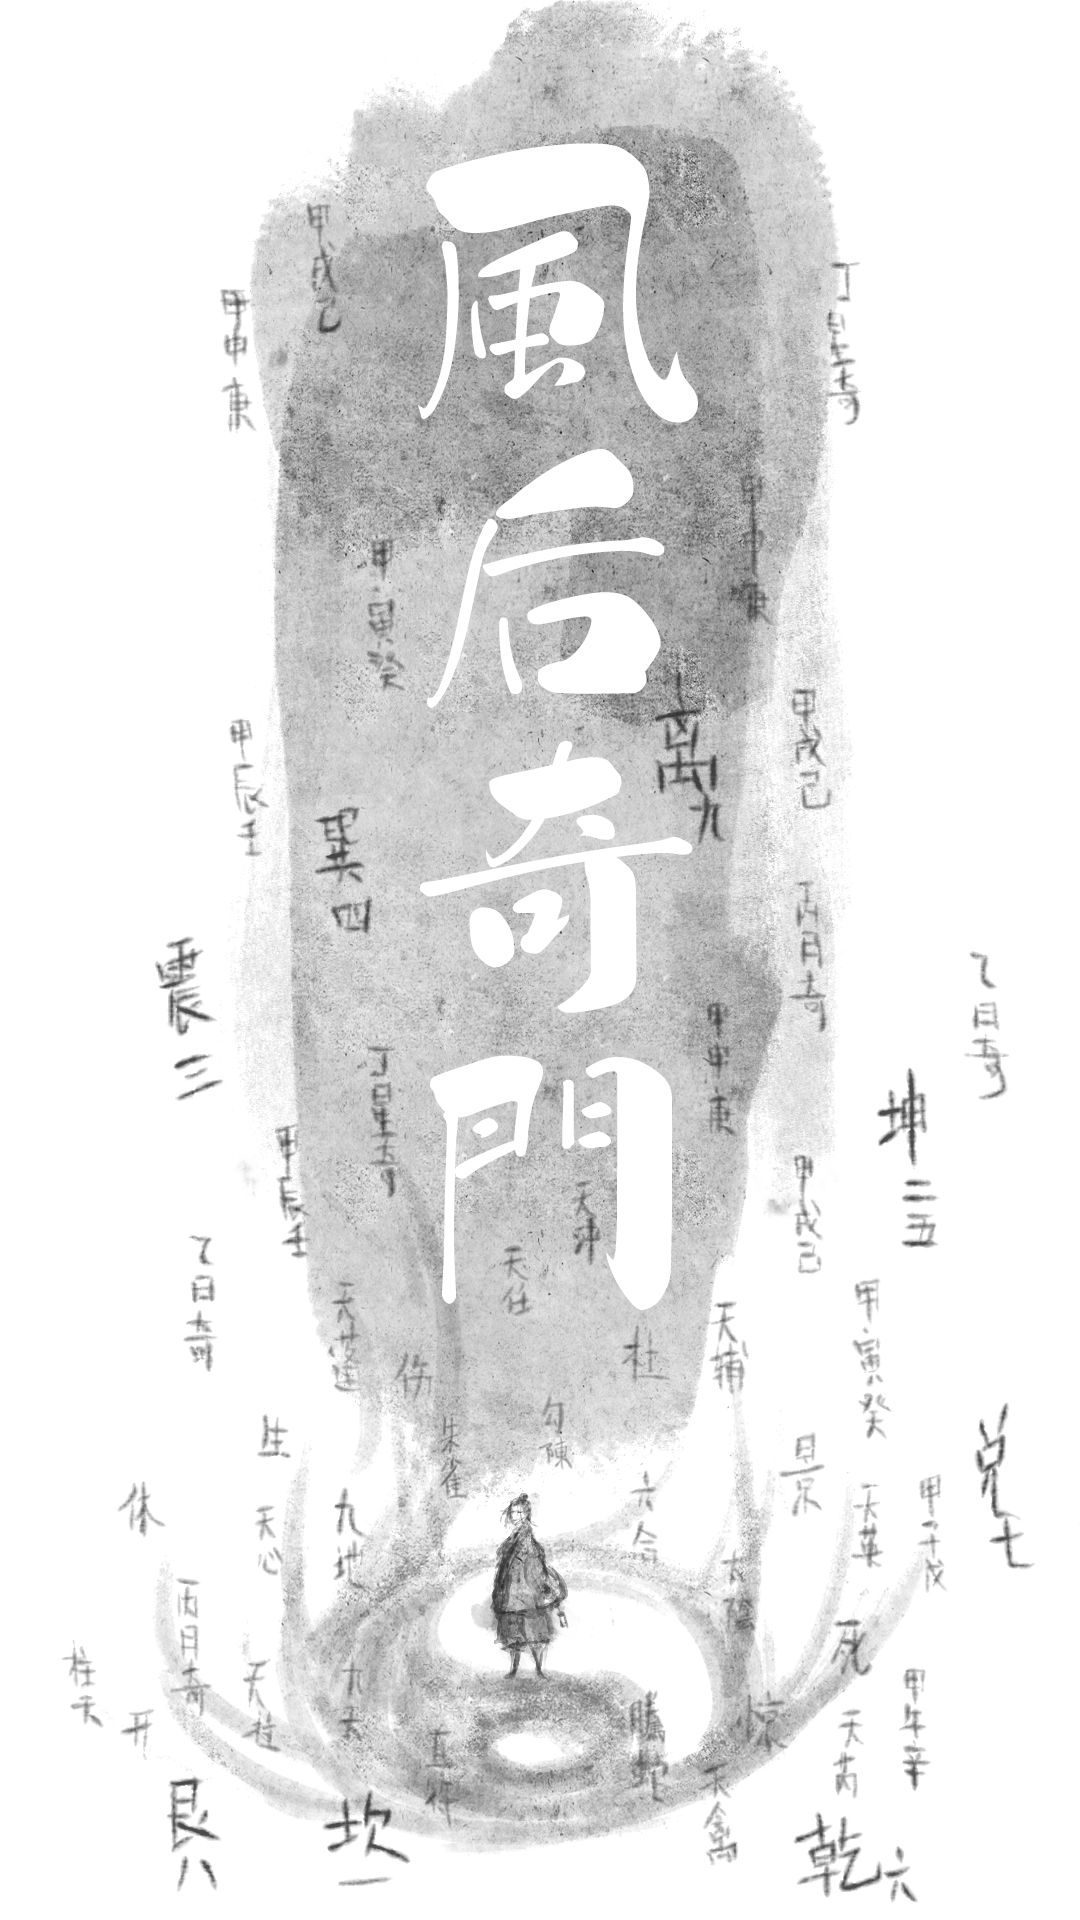 風后奇門
甲戌己
甲申庚
丁星奇
甲申庚
甲寅癸
離九
甲戌己
甲辰壬
巽四
丙月奇
震三
乙日奇
甲申庚
丁星奇
坤二五
甲辰壬
甲戌己
天沖
乙日奇
天任
天蓬
甲寅癸
天輔
杜
伤
勾陳
朱雀
生
景
兑七
六合
休
天心
九地
天英
甲子戊
太陰
丙月奇
死
柱天
天柱
九天
甲午辛
开
直符
騰蛇
惊
天芮
天禽
艮八
坎一
乾六